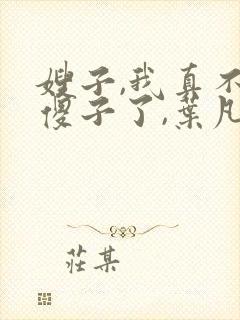 嫂子,我真不
傻子了,葉凡
莊某